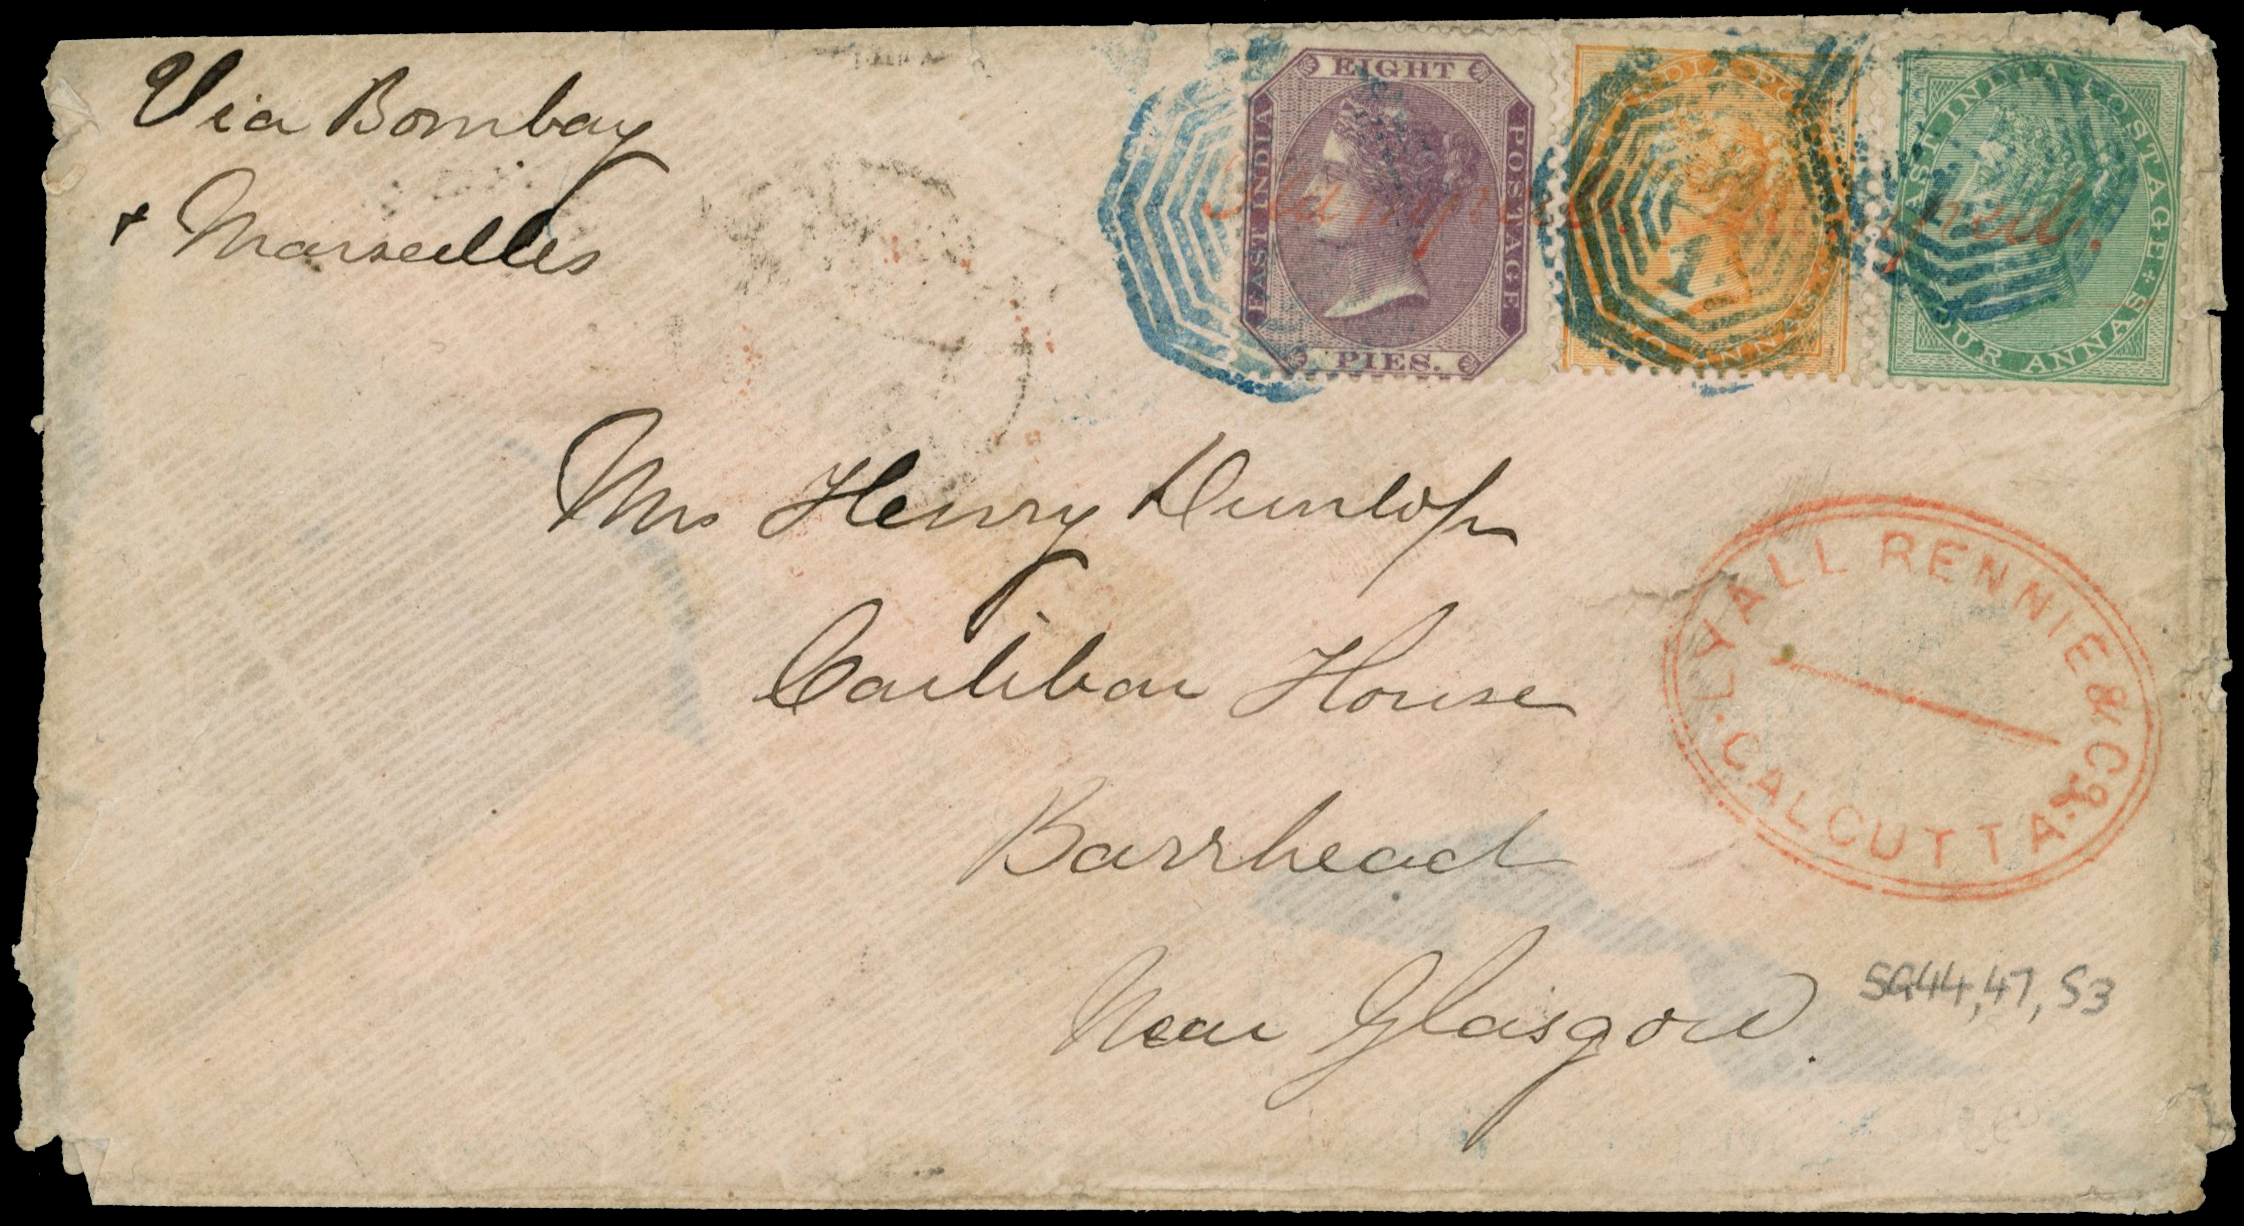 Via Bombay
+ Marseilles
EIGHT
EAST INDIA
POSTAGE
PIES.
INDIA PO
1
ANNAS
EAST INDIA POSTAGE
FOUR ANNAS
Stamped.
Stamped.
Mrs Henry Dunlop
Carlibar House
Barrhead
Near Glasgow.
LYALL RENNIE & Co
CALCUTTA
SG44, 47, 53